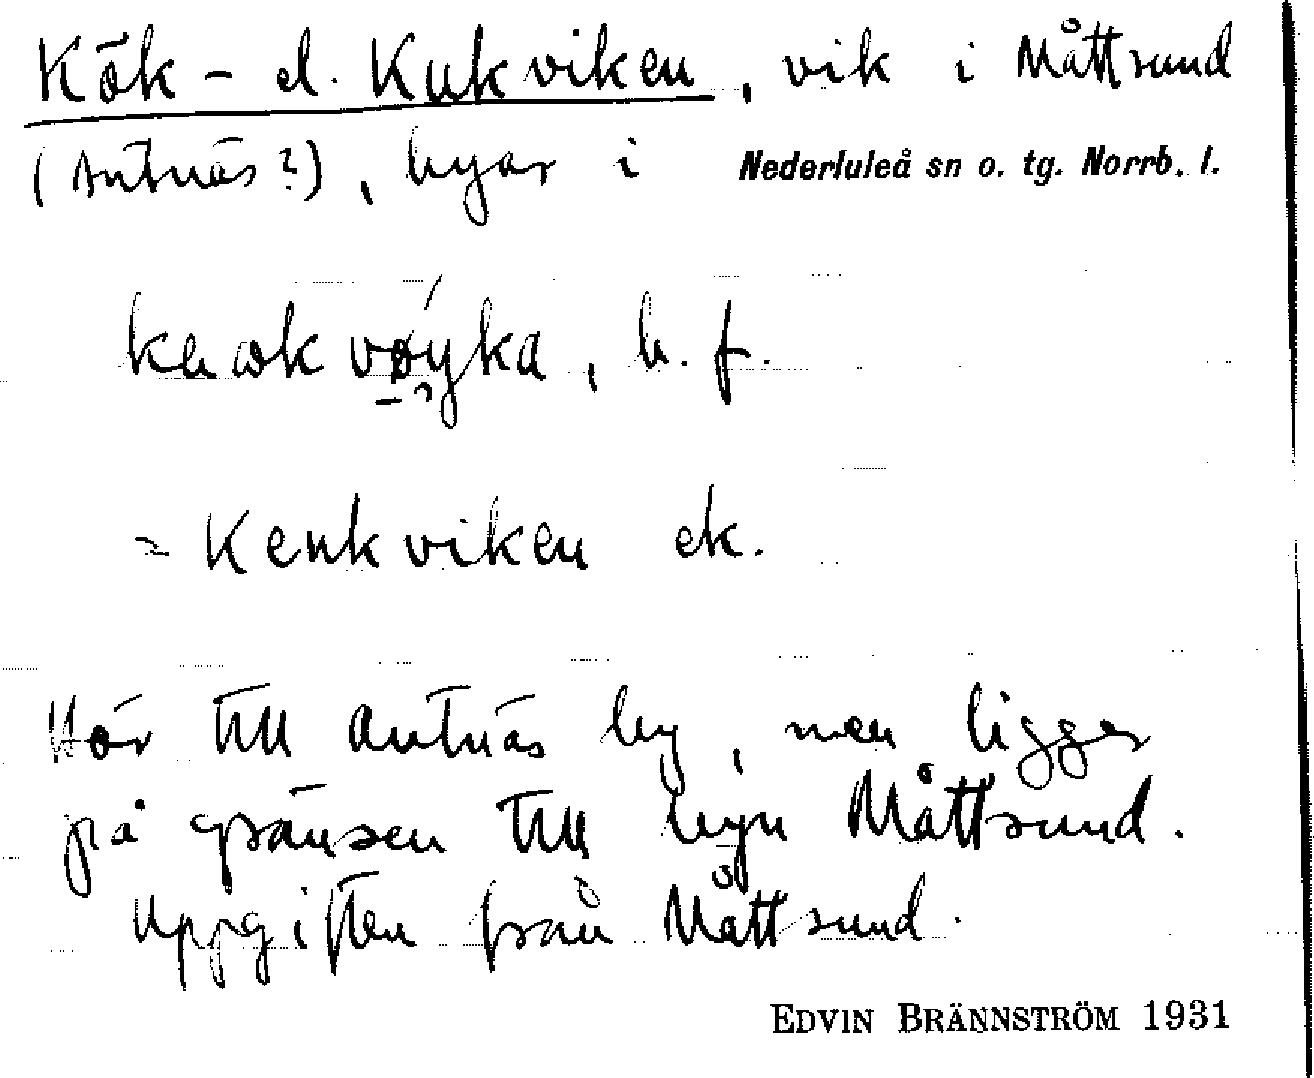 Kök- el. Kukviken, vik i Måttsund
(Antnäs?), byar i Nederluleå sn o. tg. Norrb. l.
, b. f.
= Kenkviken ek.
Hör till Antnäs by, men ligger
på gränsen till byn Måttsund.
Uppgiften från Måttsund.
EDVIN BRÄNNSTRÖM 1931